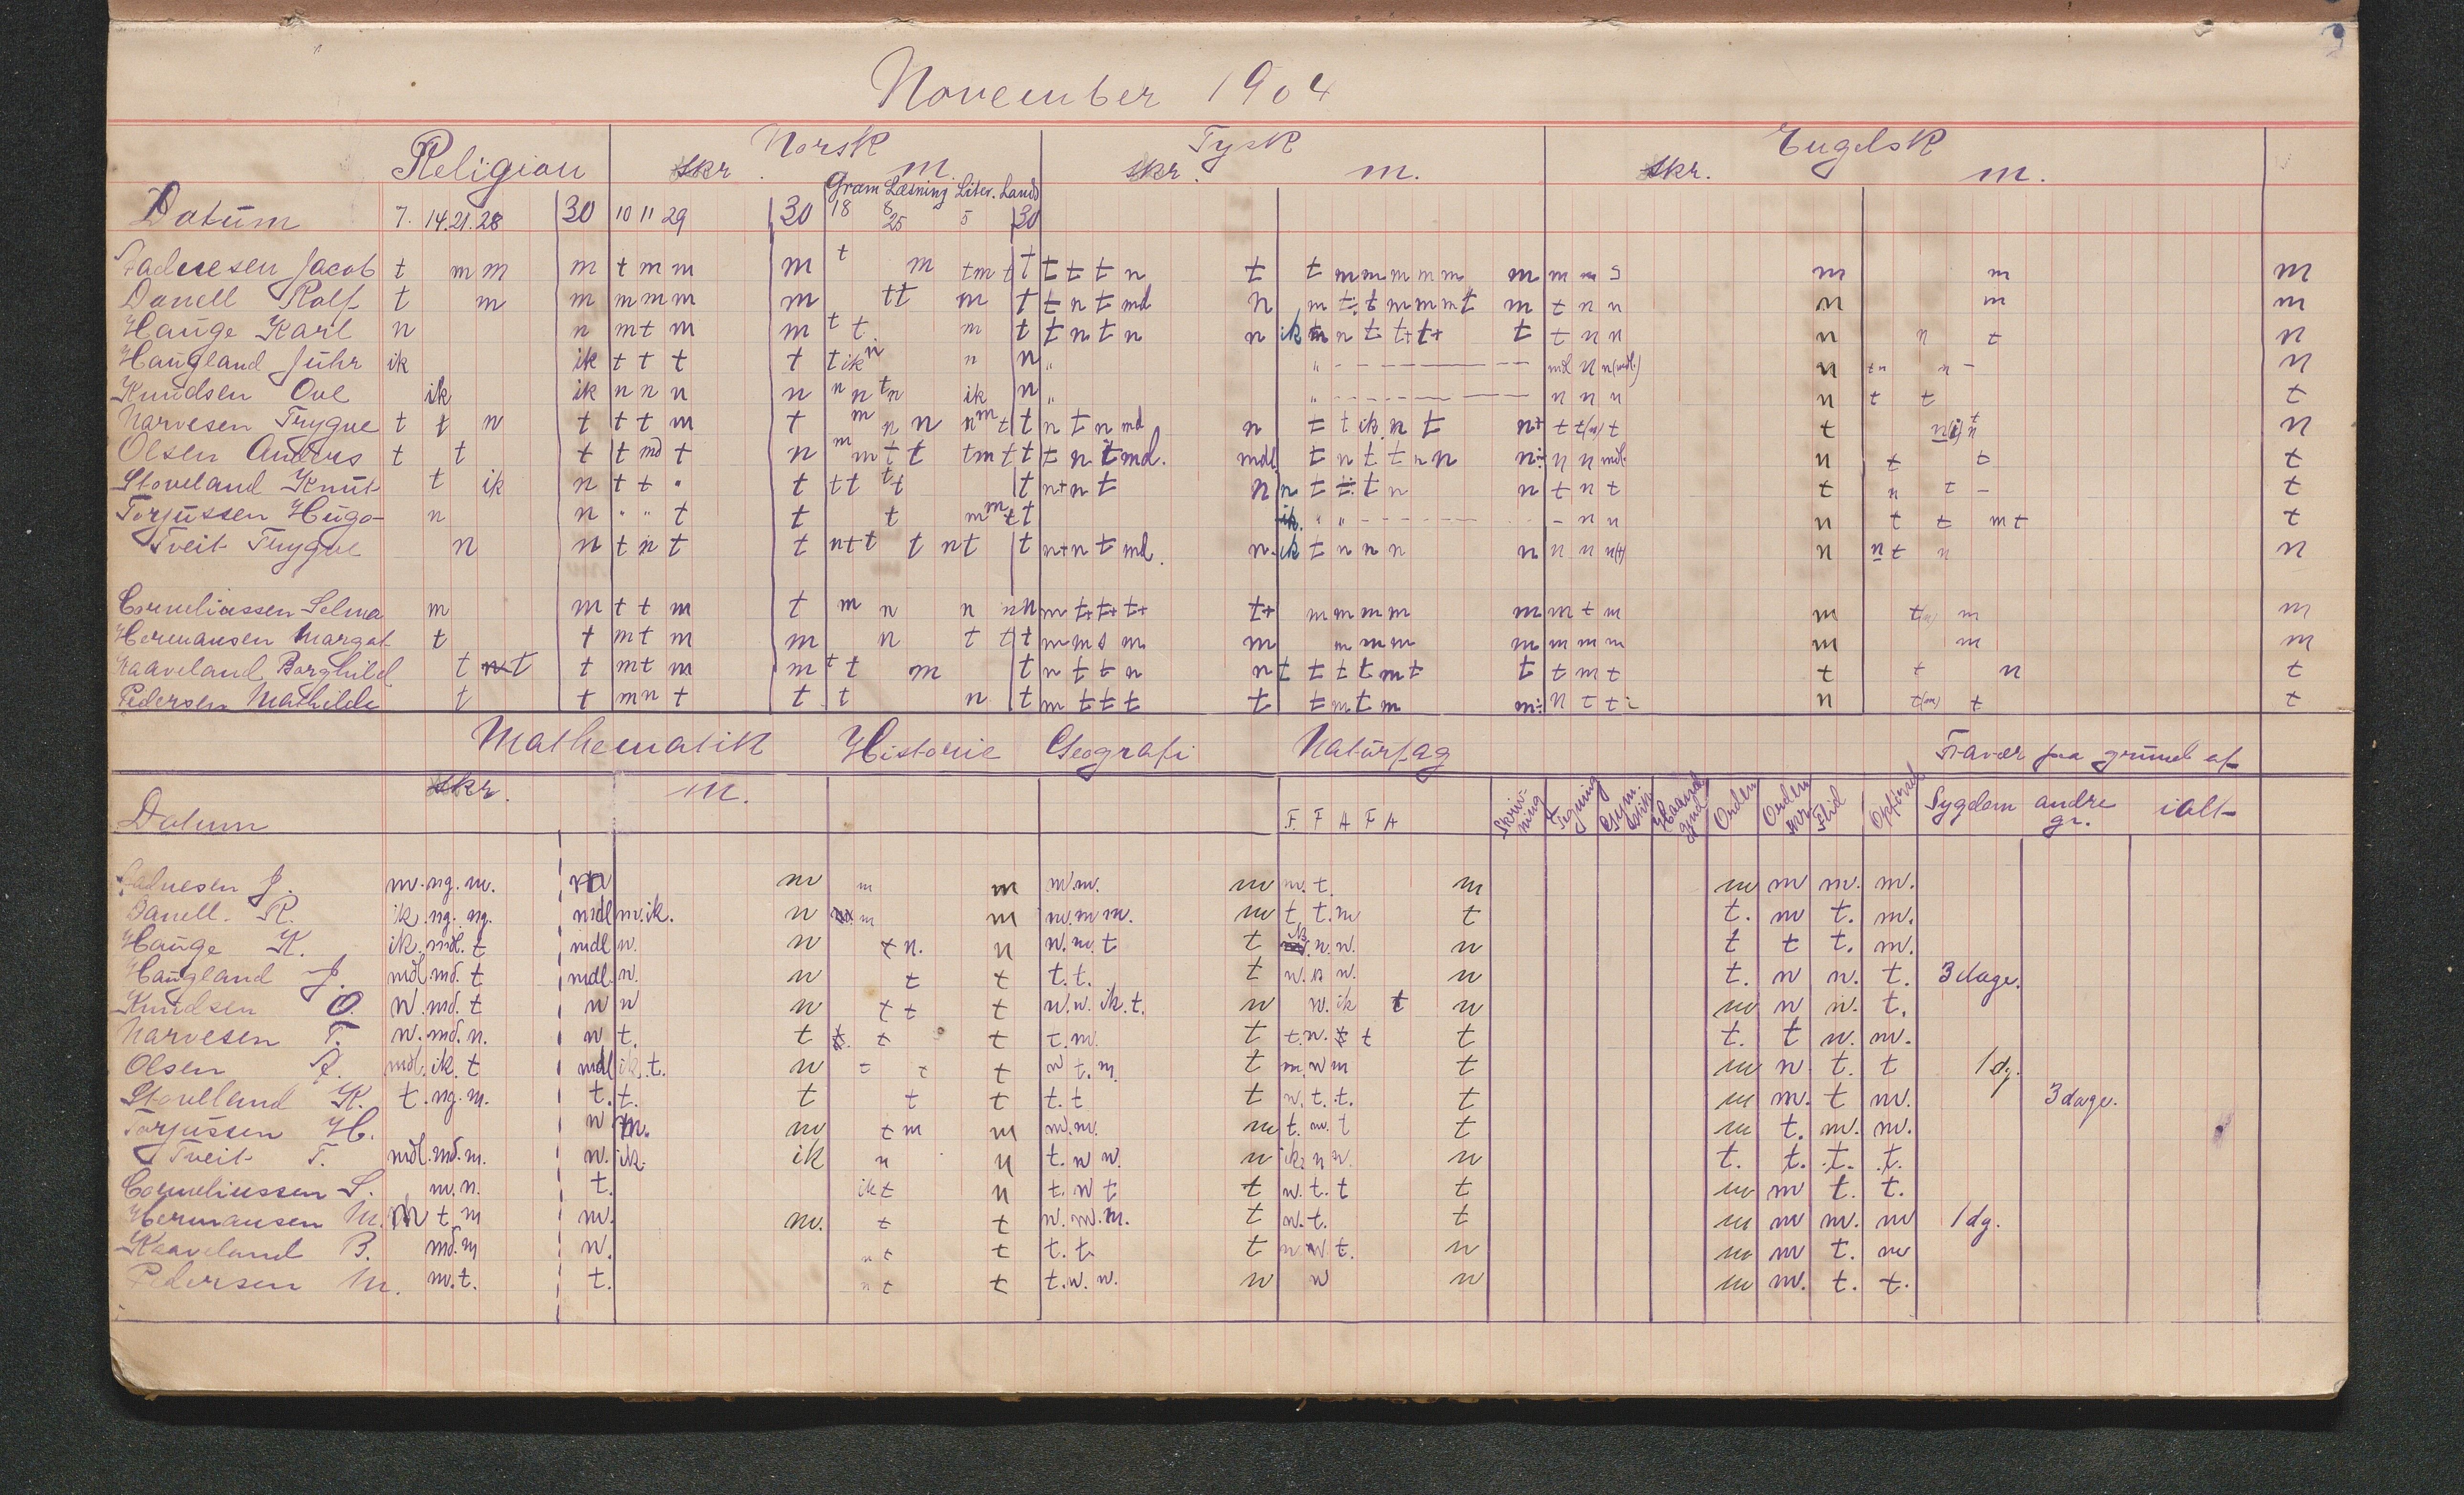 November 1904
Religion Norsk Tysk Engelsk
skr. m. skr. m. skr. m.
Gram Læsning Liter. Lands
Datum 7. 14. 21. 28 30 10 11 29 30 18 8 25 5 30
Jacob t m m m t m m m t m t m t t t t t n t t m m m m m m m m m m m
Danell Rolf t m m m m m m t t m t t n t md n m t t m m m t m t n n n m m
Hauge Karl n n m t m m t t m t t n t n n ik m n t t+ t+ t t n n n n t n
Haugland Juhr ik ik t t t t t ik n n n " " mdl n n (mdl.) n t n n - n
Knudsen Ove ik ik n n n n n n t n ik n " " n n n n t t t
Narvesen Trygve t t n t t t m t m n n n m t t n t n md n t t ik n t n+ t t(n) t t n
Olsen Anders t t t t md t n m m t t t m t t t n t md. mdl. t n t t n n n÷ n n mdl n t t t
Stoveland Knut t ik n t t " t t t t t t n+ n t n n t t t n n t n t t n t - t
Torjussen Hugo n n " " t t t m m t t ik. " " - n n n t t m t t
Tveit Trygve n n t n t t n t t t n t t n+ n t md. n. ik t n n n n n n n(t) n n t n n
Corneliussen Selma m m t t m t m n n n n m t+ t+ t+ t+ m m m m m m t m m m m
Hermansen Margot t t m t m m n t t t m m s m m m m m m m m m m m m
Kaaveland Borghild t n t t m t m m t t m t n t t n n t t t t m t t t m t t t n t
Pedersen Mathilde t t m n t t t n t m t t t t t m t m m÷ n t t÷ n t(m) t t
Mathematik Historie Geografi Naturfag Fravær paa grund af
skr. m. Skriv-ning Tegning Gym-nastik Haand-gjerd Orden Orden Flid Opførsel Sygdom andre gr. ialt
Datum F. F A F A
J. m. ng. m. m m m m m. m. m m. t. m m m m. m.
Danell. R. ik. ng. ng. mdl m. ik. n m m m. m m. m t. t. m t t. m t. m.
Hauge K. ik. mdl. t mdl n. n t n. n n. m. t t n. n. n t t t. m.
Haugland J. mdl. md. t mdl. n. n t t t. t. t n. n n. n t. n n. t. 3 dage.
Knudsen O. n. md. t n n n t t t n. n. ik. t. n n. ik t n m n n. t.
Narvesen T. n. md. n. n t. t t. t t t. m. t t. n. t t t t. t n. m.
Olsen A. mdl. ik. t mdl ik. t. n t t t n t. m. t m. n m t m n. t. t 1 dg.
Stoveland K. t. ng. m. t. t. t t t t. t t n. t. t. t m m. t m. 3 dage.
Torjussen H. n m. m t m m m. m. m t. m. t t m t. m. m.
Tveit T. mdl. md. m. n. ik. ik n n t. n n. n ik. n n. n t. t. t. t.
Corneliussen S. m. n. t. ik t n t. n t t n. t. t t m m t. t.
Hermansen M. m t m m. m. t t n. m. m. t n. t. t m m m. m 1 dg.
Kaaveland B. md. m n. n t t t. t. t n. n t. n m m t. m
Pedersen M. m. t. t. n t t t. n. n. n n n m m. t. t.